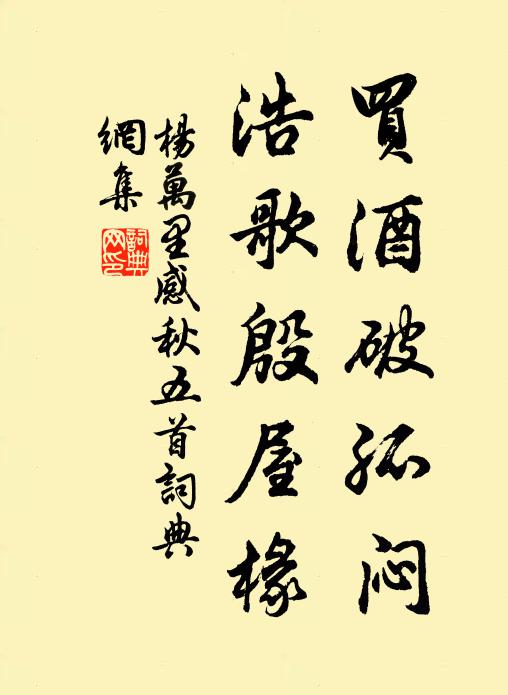 買酒破孤闷
浩歌殷屋椽
楊萬里感秋五首詞典
網集
詞典网印